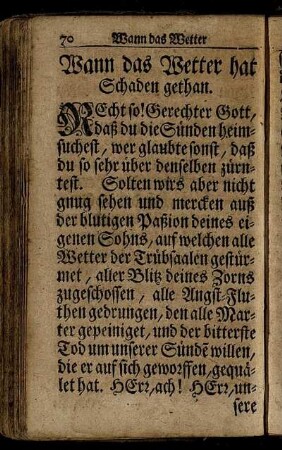 70 Wann das Wetter
Wann das Wetter hat
Schaden gethan.
REcht so! Gerechter Gott,
daß du die Sünden heim-
suchest, wer glaubte sonst, daß
du so sehr über denselben zürn-
test. Solten wirs aber nicht
gnug sehen und mercken auß
der blutigen Paßion deines ei-
genen Sohns, auf welchen alle
Wetter der Trübsaalen gestür-
met, aller Blitz deines Zorns
zugeschossen, alle Angst-Flu-
then gedrungen, den alle Mar-
ter gepeiniget, und der bitterste
Tod um unserer Sündẽ willen,
die er auf sich geworffen, gequä-
let hat. HErr, ach! HErr, un-
sere